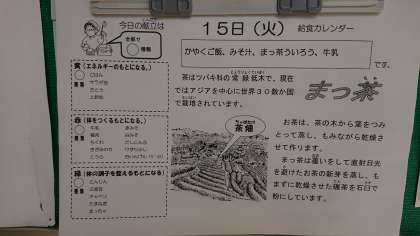 今日の献立は
15日(火)
給食カレンダー
主献立
かやくご飯、みそ汁、まっ茶ういろう、牛乳
です。
黄(エネルギーのもとになる。)
ごはん
さとう
上新粉
赤(体をつくるもとになる。)
牛乳
赤みそ
白みそ
ちくわ
とうふ
緑(体の調子を整えるもとになる)
にんじん
ごぼう
たまねぎ
まっちゃ
茶はツバキ科の常緑低木で、現在
ではアジアを中心に世界30数か国
で栽培されています。
まっ茶
茶畑
お茶は、茶の木から葉をつみ
とって蒸し、もみながら乾燥さ
せて作ります。
まっ茶は覆いをして直射日光
を避けたお茶の新芽を蒸し、も
まずに乾燥させた碾茶を石臼で
粉にしています。